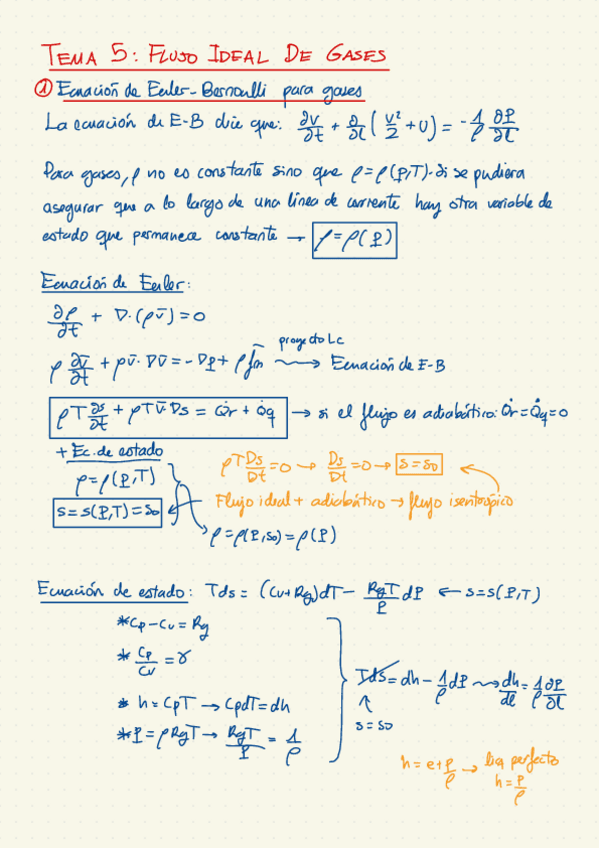 TEMA 5: FLUJO IDEAL DE GASES
① Ecuación de Euler-Bernoulli para gases
La ecuación de E-B dice que: ∂v/∂t + ∂/∂l (v²/2 + U) = -1/ρ ∂P/∂l
Para gases, ρ no es constante sino que ρ=ρ(P,T). Si se pudiera
asegurar que a lo largo de una línea de corriente hay otra variable de
estado que permanece constante → ρ=ρ(P)
Ecuación de Euler:
∂ρ/∂t + ∇·(ρv̄)=0
ρ ∂v̄/∂t + ρv̄·∇v̄ = -∇P + ρf̄m proyecto Lc → Ecuación de E-B
ρT ∂s/∂t + ρTv̄·∇s = Q̇r + Q̇q → si el flujo es adiabático: Q̇r=Q̇q=0
+ Ec. de estado
ρ=ρ(P,T)
s=s(P,T)=s₀
ρT Ds/Dt =0 → Ds/Dt =0 → s=s₀
Flujo ideal + adiabático → flujo isentrópico
ρ=ρ(P,s₀)=ρ(P)
Ecuación de estado: Tds = (Cv+Rg)dT - RgT/P dP ← s=s(P,T)
*Cp-Cv=Rg
* Cp/Cv =γ
* h=CpT → CpdT=dh
*P=ρRgT → RgT/P = 1/ρ
Tds=dh - 1/ρ dP → dh/dl = 1/ρ ∂P/∂l
↑
s=s₀
h=e+P/ρ → liq perfecto
h=P/ρ